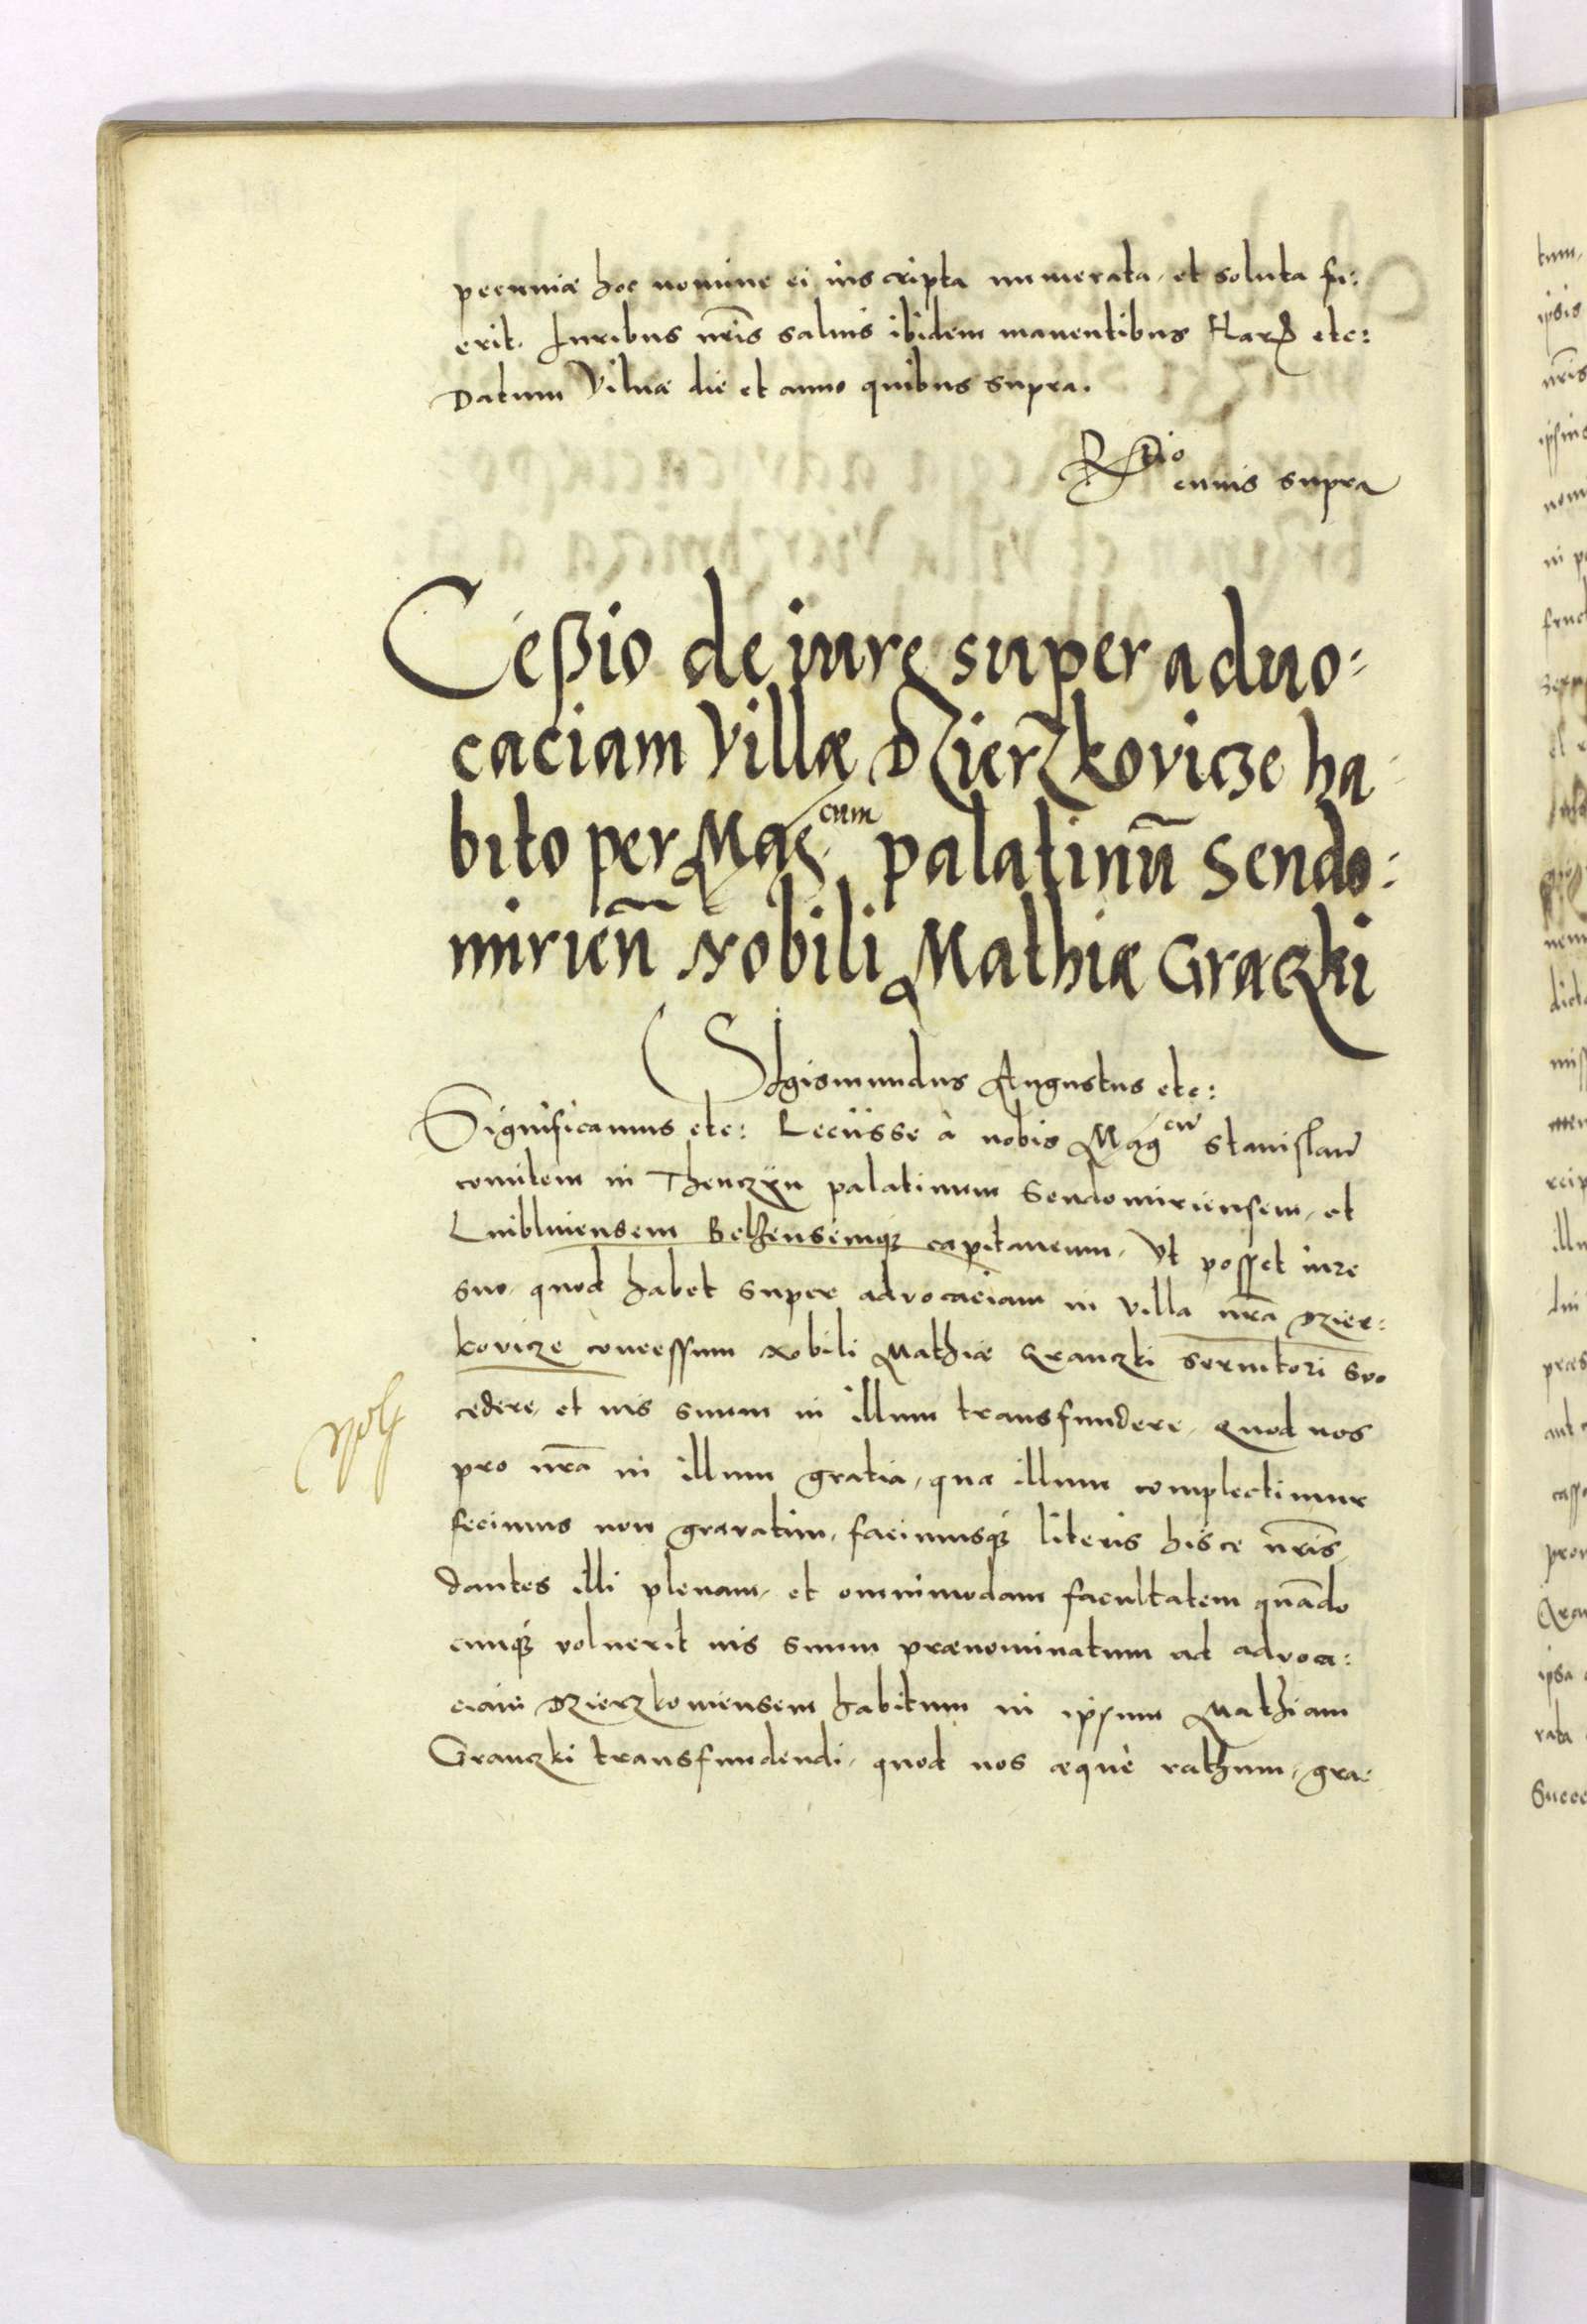 pecuniæ hoc nomine ei inscripta numerata, et soluta fu:
erit. Iuribus nr̃is saluis ibidem manentibus Har etc:
Datum Vilnæ die et anno quibus supra.
R̃tio
cuius supra
Ceßio de iure super aduo:
caciam Villæ Dzierzkovicze ha
bito per Mag:cum palatinũ Sendo:
mirieñ Nobili Mathiæ Graczki
Sigismundus Augustus etc:
Significamus etc: Leciisse à nobis Magcũ Stanislaũ
comitem in Thenczyn palatinum Sendomiriensem, et
Lublinensem Belzensemq₃ capitaneum, Vt posset iure
suo, quod habet super advocaciam in villa nr̃a Dzier:
kovicze concessum Nobili Mathiæ Granczki servitori suo
cedere, et ius suum in illum transfundere, Quod nos
pro nr̃a in illum gratia, qua illum complectimur
fecimus non gravatim, facimusq₃ literis hisce nr̃is,
dantes illi plenam, et omnimodam facultatem quãdo
cunq₃ voluerit ius suum prænominatum ad advoca:
ciam Dzierzkoviensem habitum in ipsum Mathiam
Granczki transfundendi, quod nos æquè rathum, gra: